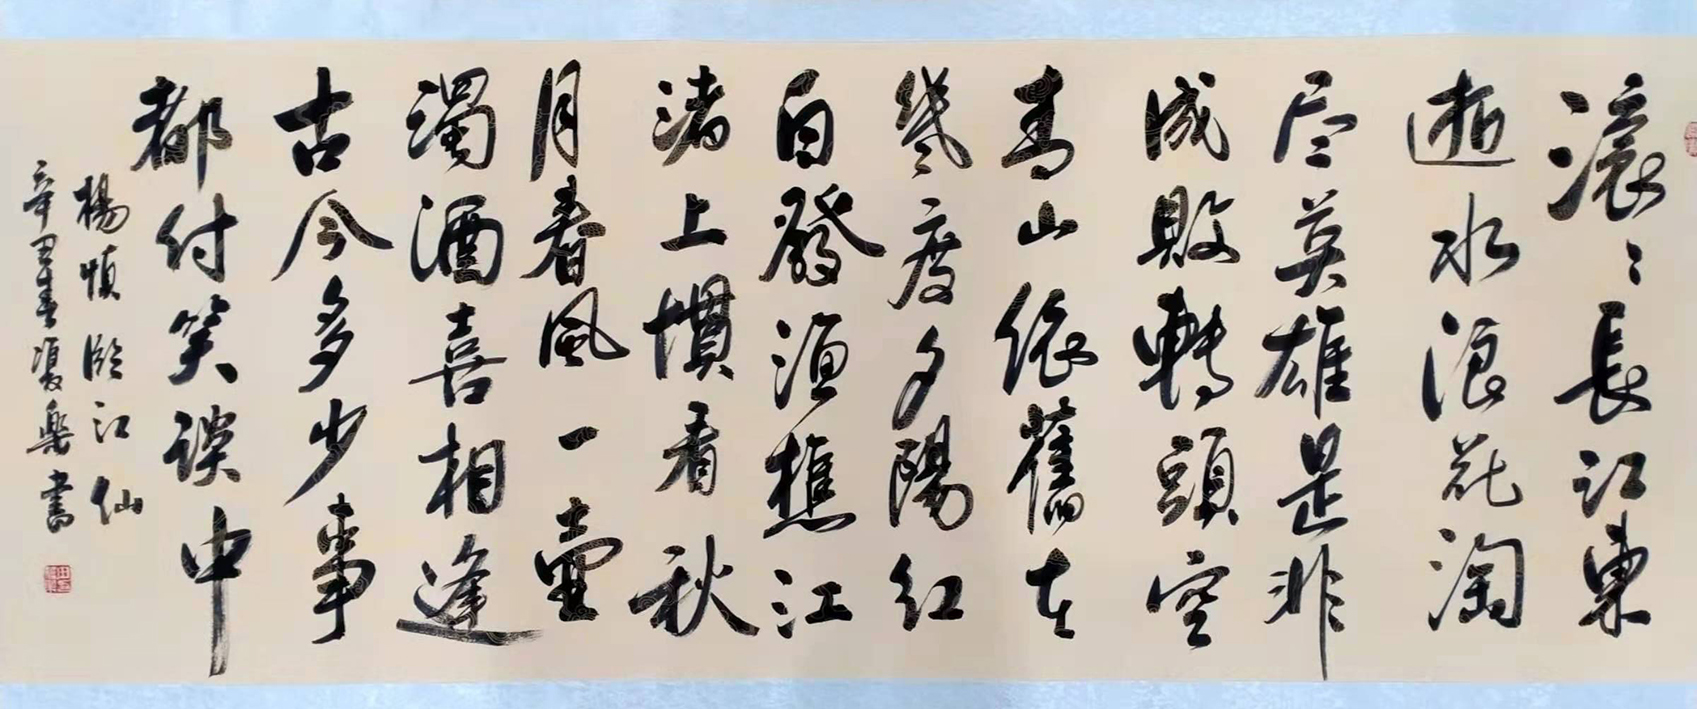 滚〻長江東
逝水浪花淘
尽英雄是非
成敗轉頭空
青山依舊在
幾度夕陽紅
白發漁樵江
渚上慣看秋
月春風一壺
濁酒喜相逢
古今多少事
都付笑談中
楊慎臨江仙
辛丑春夏樂書